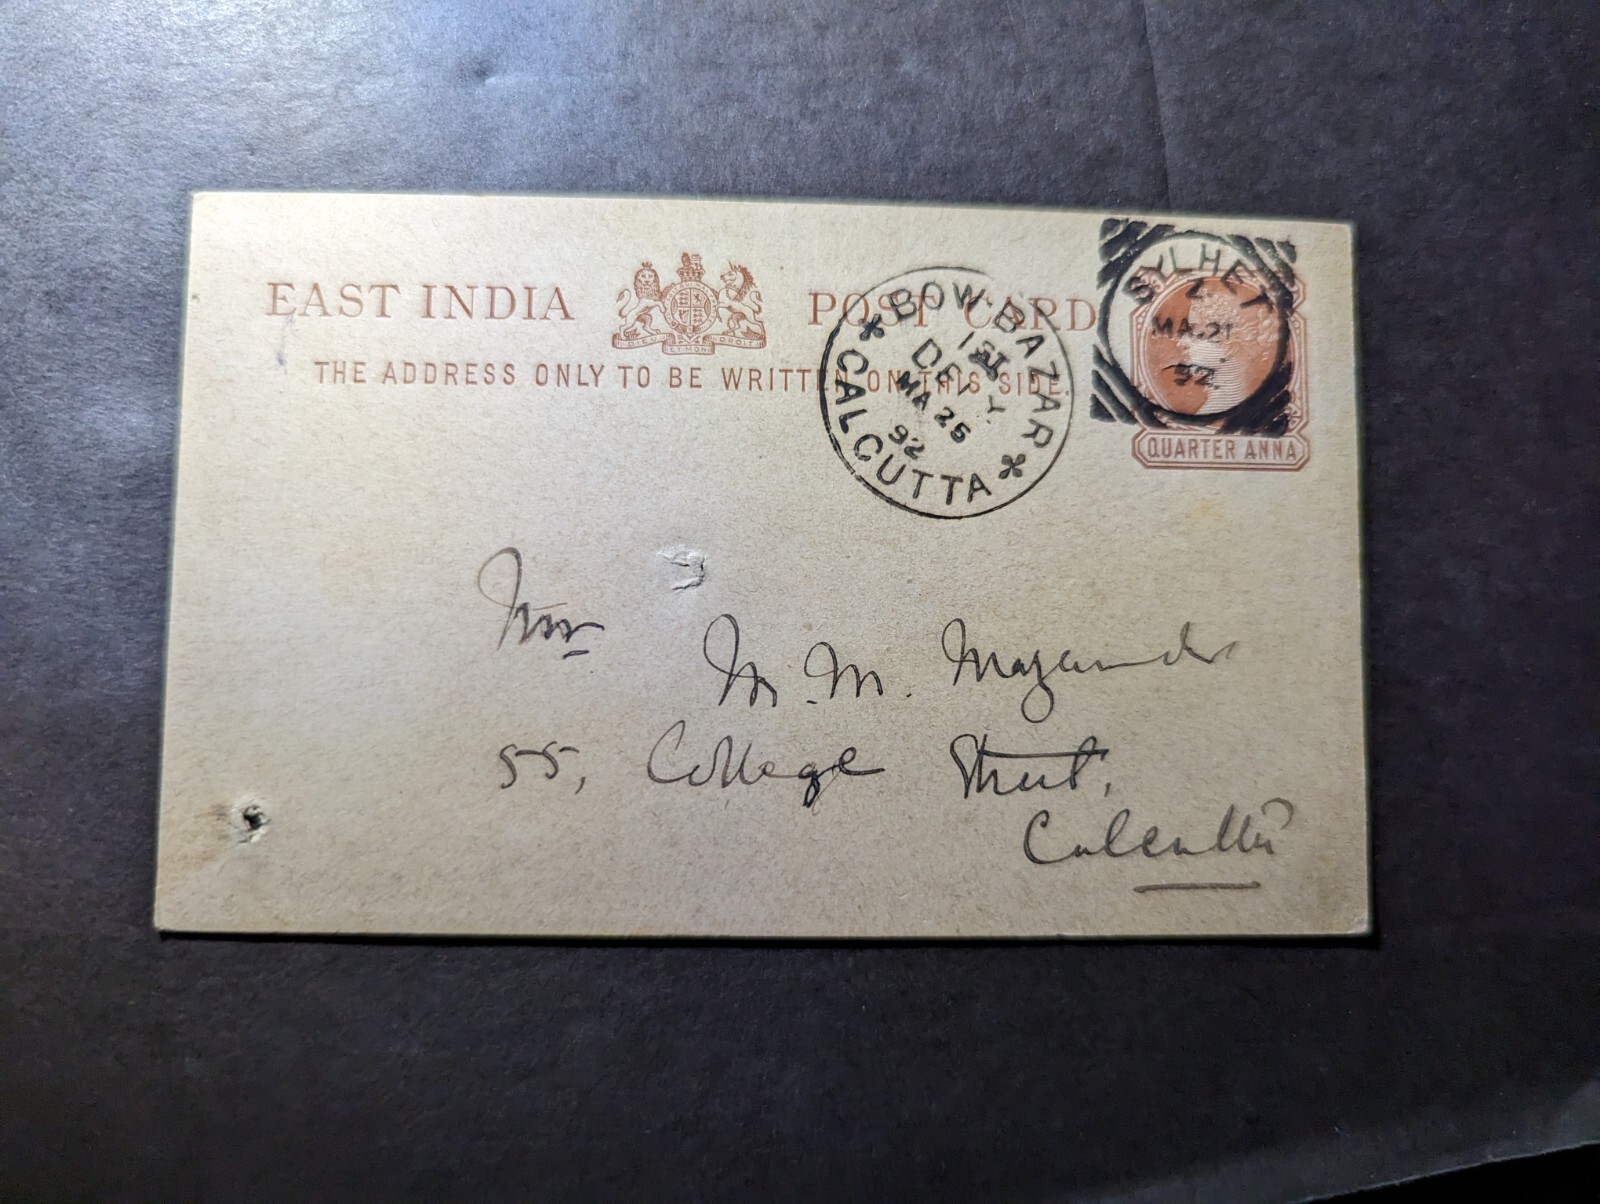 EAST INDIA POST CARD
THE ADDRESS ONLY TO BE WRITTEN ON THIS SIDE.
BOW BAZAR
1ST
DELY
MA 25
92
CALCUTTA
SYLHET
L
MA.21
92.
QUARTER ANNA
DIEU ET MON DROIT
M. M.
55, College Street,
Calcutta